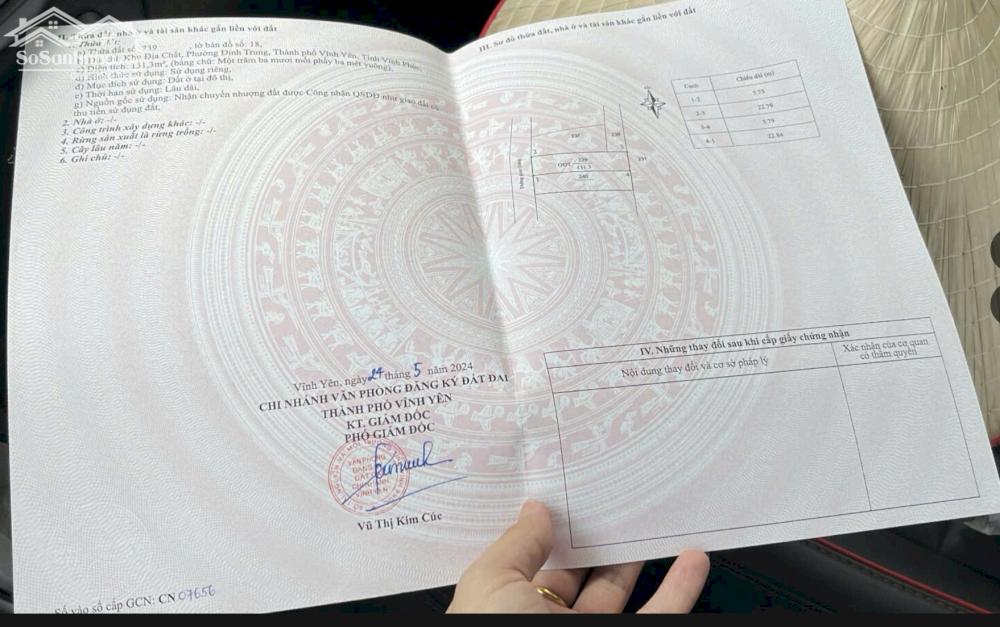 SoSanh
II. Thửa đất, nhà ở và tài sản khác gắn liền với đất
a) Thửa đất số: 239 , tờ bản đồ số: 18,
Khu Địa Chất, Phường Định Trung, Thành phố Vĩnh Yên, Tỉnh Vĩnh Phúc,
c) Diện tích: 131,3m², (bằng chữ: Một trăm ba mươi mốt phẩy ba mét vuông),
d) Hình thức sử dụng: Sử dụng riêng,
đ) Mục đích sử dụng: Đất ở tại đô thị,
e) Thời hạn sử dụng: Lâu dài,
g) Nguồn gốc sử dụng: Nhận chuyển nhượng đất được Công nhận QSDĐ như giao đất có
thu tiền sử dụng đất,
2. Nhà ở: -/-
3. Công trình xây dựng khác: -/-
4. Rừng sản xuất là rừng trồng: -/-
5. Cây lâu năm: -/-
6. Ghi chú: -/-
Vĩnh Yên, ngày 24 tháng 5 năm 2024
CHI NHÁNH VĂN PHÒNG ĐĂNG KÝ ĐẤT ĐAI
THÀNH PHỐ VĨNH YÊN
KT. GIÁM ĐỐC
PHÓ GIÁM ĐỐC
VĂN PHÒNG
ĐĂNG KÝ
ĐẤT ĐAI
CHI NHÁNH
VĨNH YÊN
Vũ Thị Kim Cúc
Số vào sổ cấp GCN: CN 07656
III. Sơ đồ thửa đất, nhà ở và tài sản khác gắn liền với đất
Cạnh Chiều dài (m)
1-2 5.75
2-3 22.79
3-4 5.79
4-1 22.84
2 3
ODT 239
131.3
1 4
240
IV. Những thay đổi sau khi cấp giấy chứng nhận
Nội dung thay đổi và cơ sở pháp lý
Xác nhận của cơ quan
có thẩm quyền